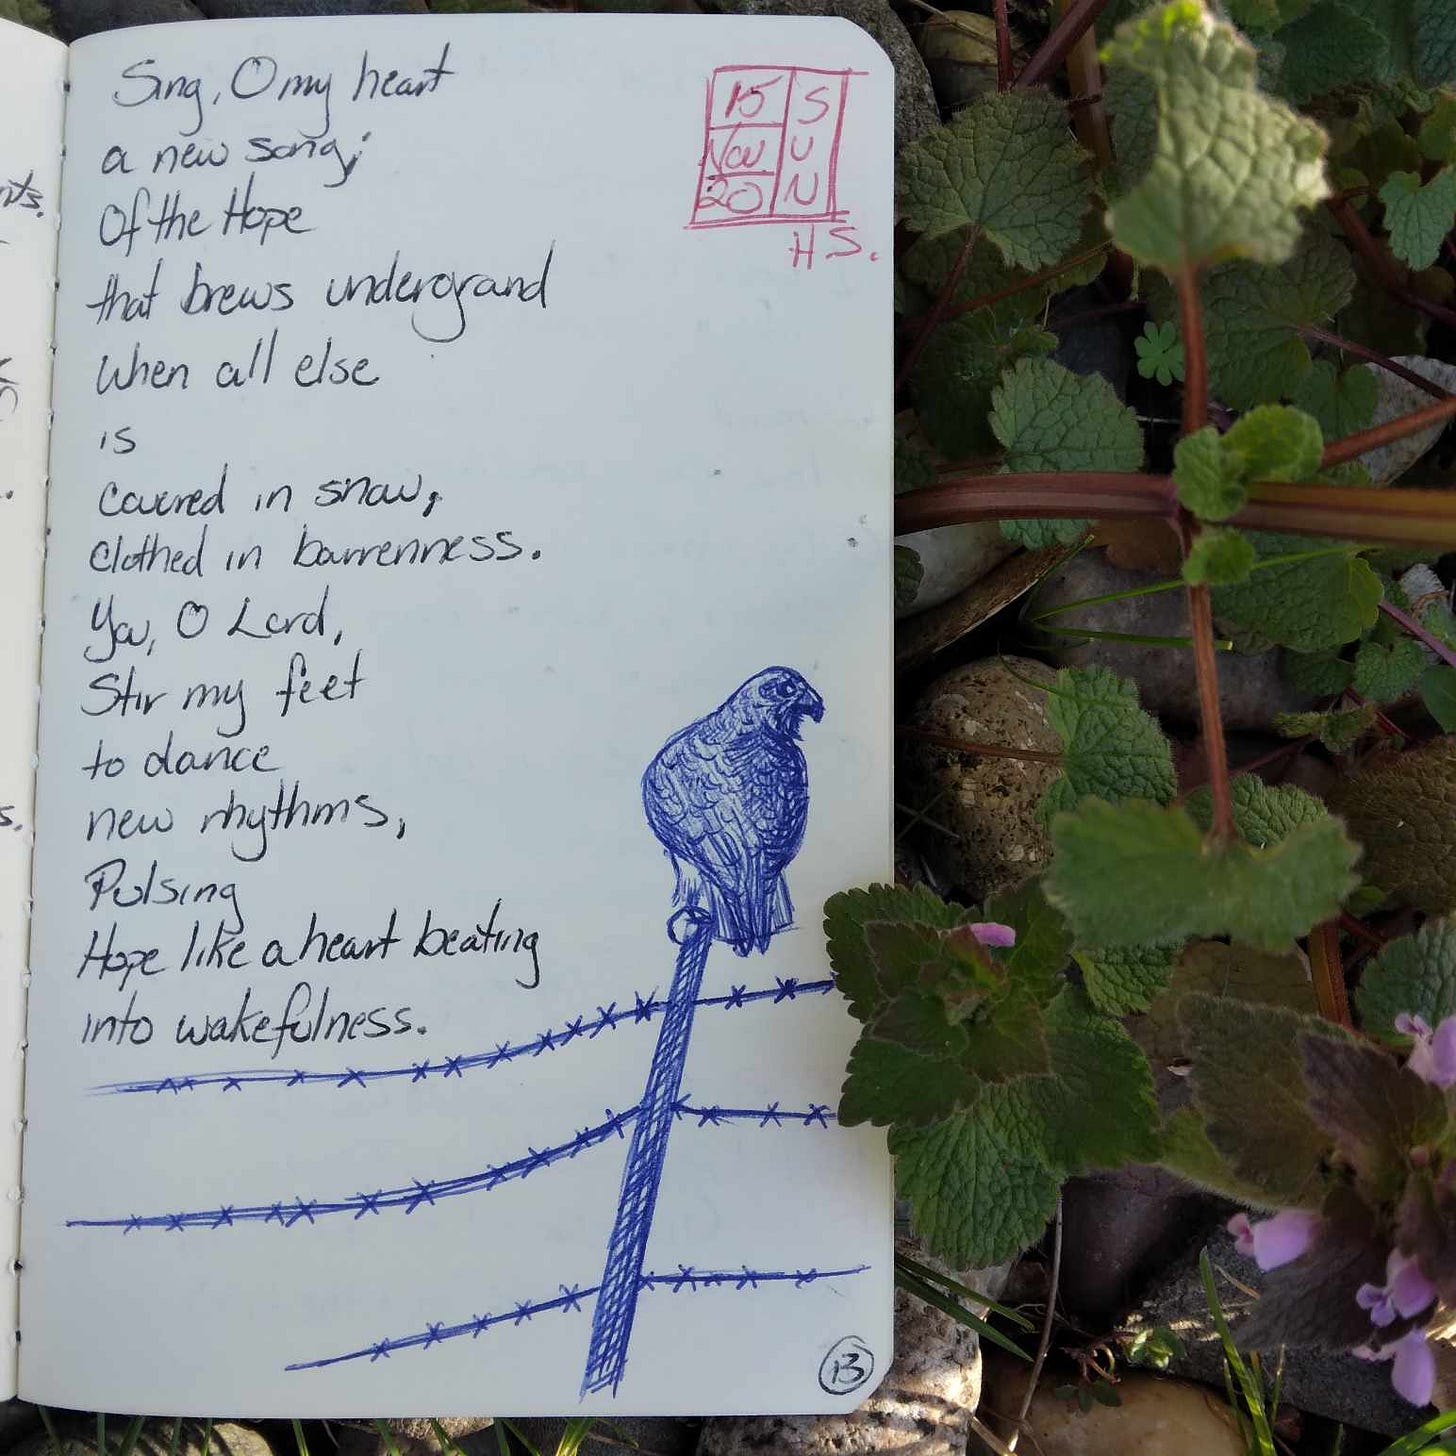 Sing, O my heart
a new song;
Of the Hope
that brews underground
When all else
is
Covered in snow,
Clothed in barrenness.
You, O Lord,
Stir my feet
to dance
new rhythms,
Pulsing
Hope like a heart beating
into wakefulness.
15 S
Nov U
20 N
H.S.
13
nts.
s.